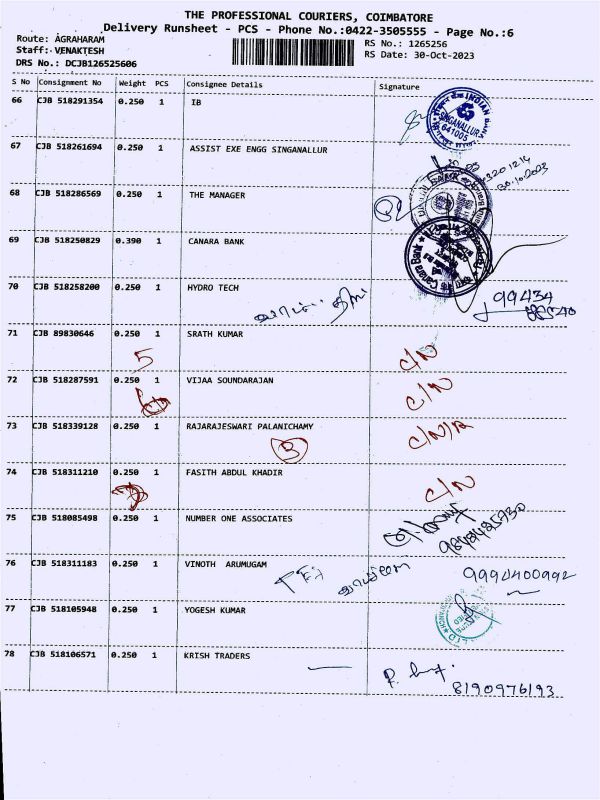 THE PROFESSIONAL COURIERS, COIMBATORE
Delivery Runsheet - PCS - Phone No.:0422-3505555 - Page No.:6
Route: AGRAHARAM
RS No.: 1265256
Staff: VENAKTESH
RS Date: 30-Oct-2023
DRS No.: DCJB126525606
S No Consignment No Weight PCS Consignee Details Signature
66 CJB 518291354 0.250 1 IB
INDIAN BANK SINGANALLUR 641005
67 CJB 518261694 0.250 1 ASSIST EXE ENGG SINGANALLUR
30.10.2023
68 CJB 518286569 0.250 1 THE MANAGER
69 CJB 518250829 0.390 1 CANARA BANK
Canara Bank
70 CJB 518258200 0.250 1 HYDRO TECH
99434
71 CJB 89830646 0.250 1 SRATH KUMAR C/N
5
72 CJB 518287591 0.250 1 VIJAA SOUNDARAJAN C/N
73 CJB 518339128 0.250 1 RAJARAJESWARI PALANICHAMY C/N/R
3
74 CJB 518311210 0.250 1 FASITH ABDUL KHADIR C/N
75 CJB 518085498 0.250 1 NUMBER ONE ASSOCIATES
76 CJB 518311183 0.250 1 VINOTH ARUMUGAM 9994400992
77 CJB 518105948 0.250 1 YOGESH KUMAR
78 CJB 518106571 0.250 1 KRISH TRADERS
8190976193